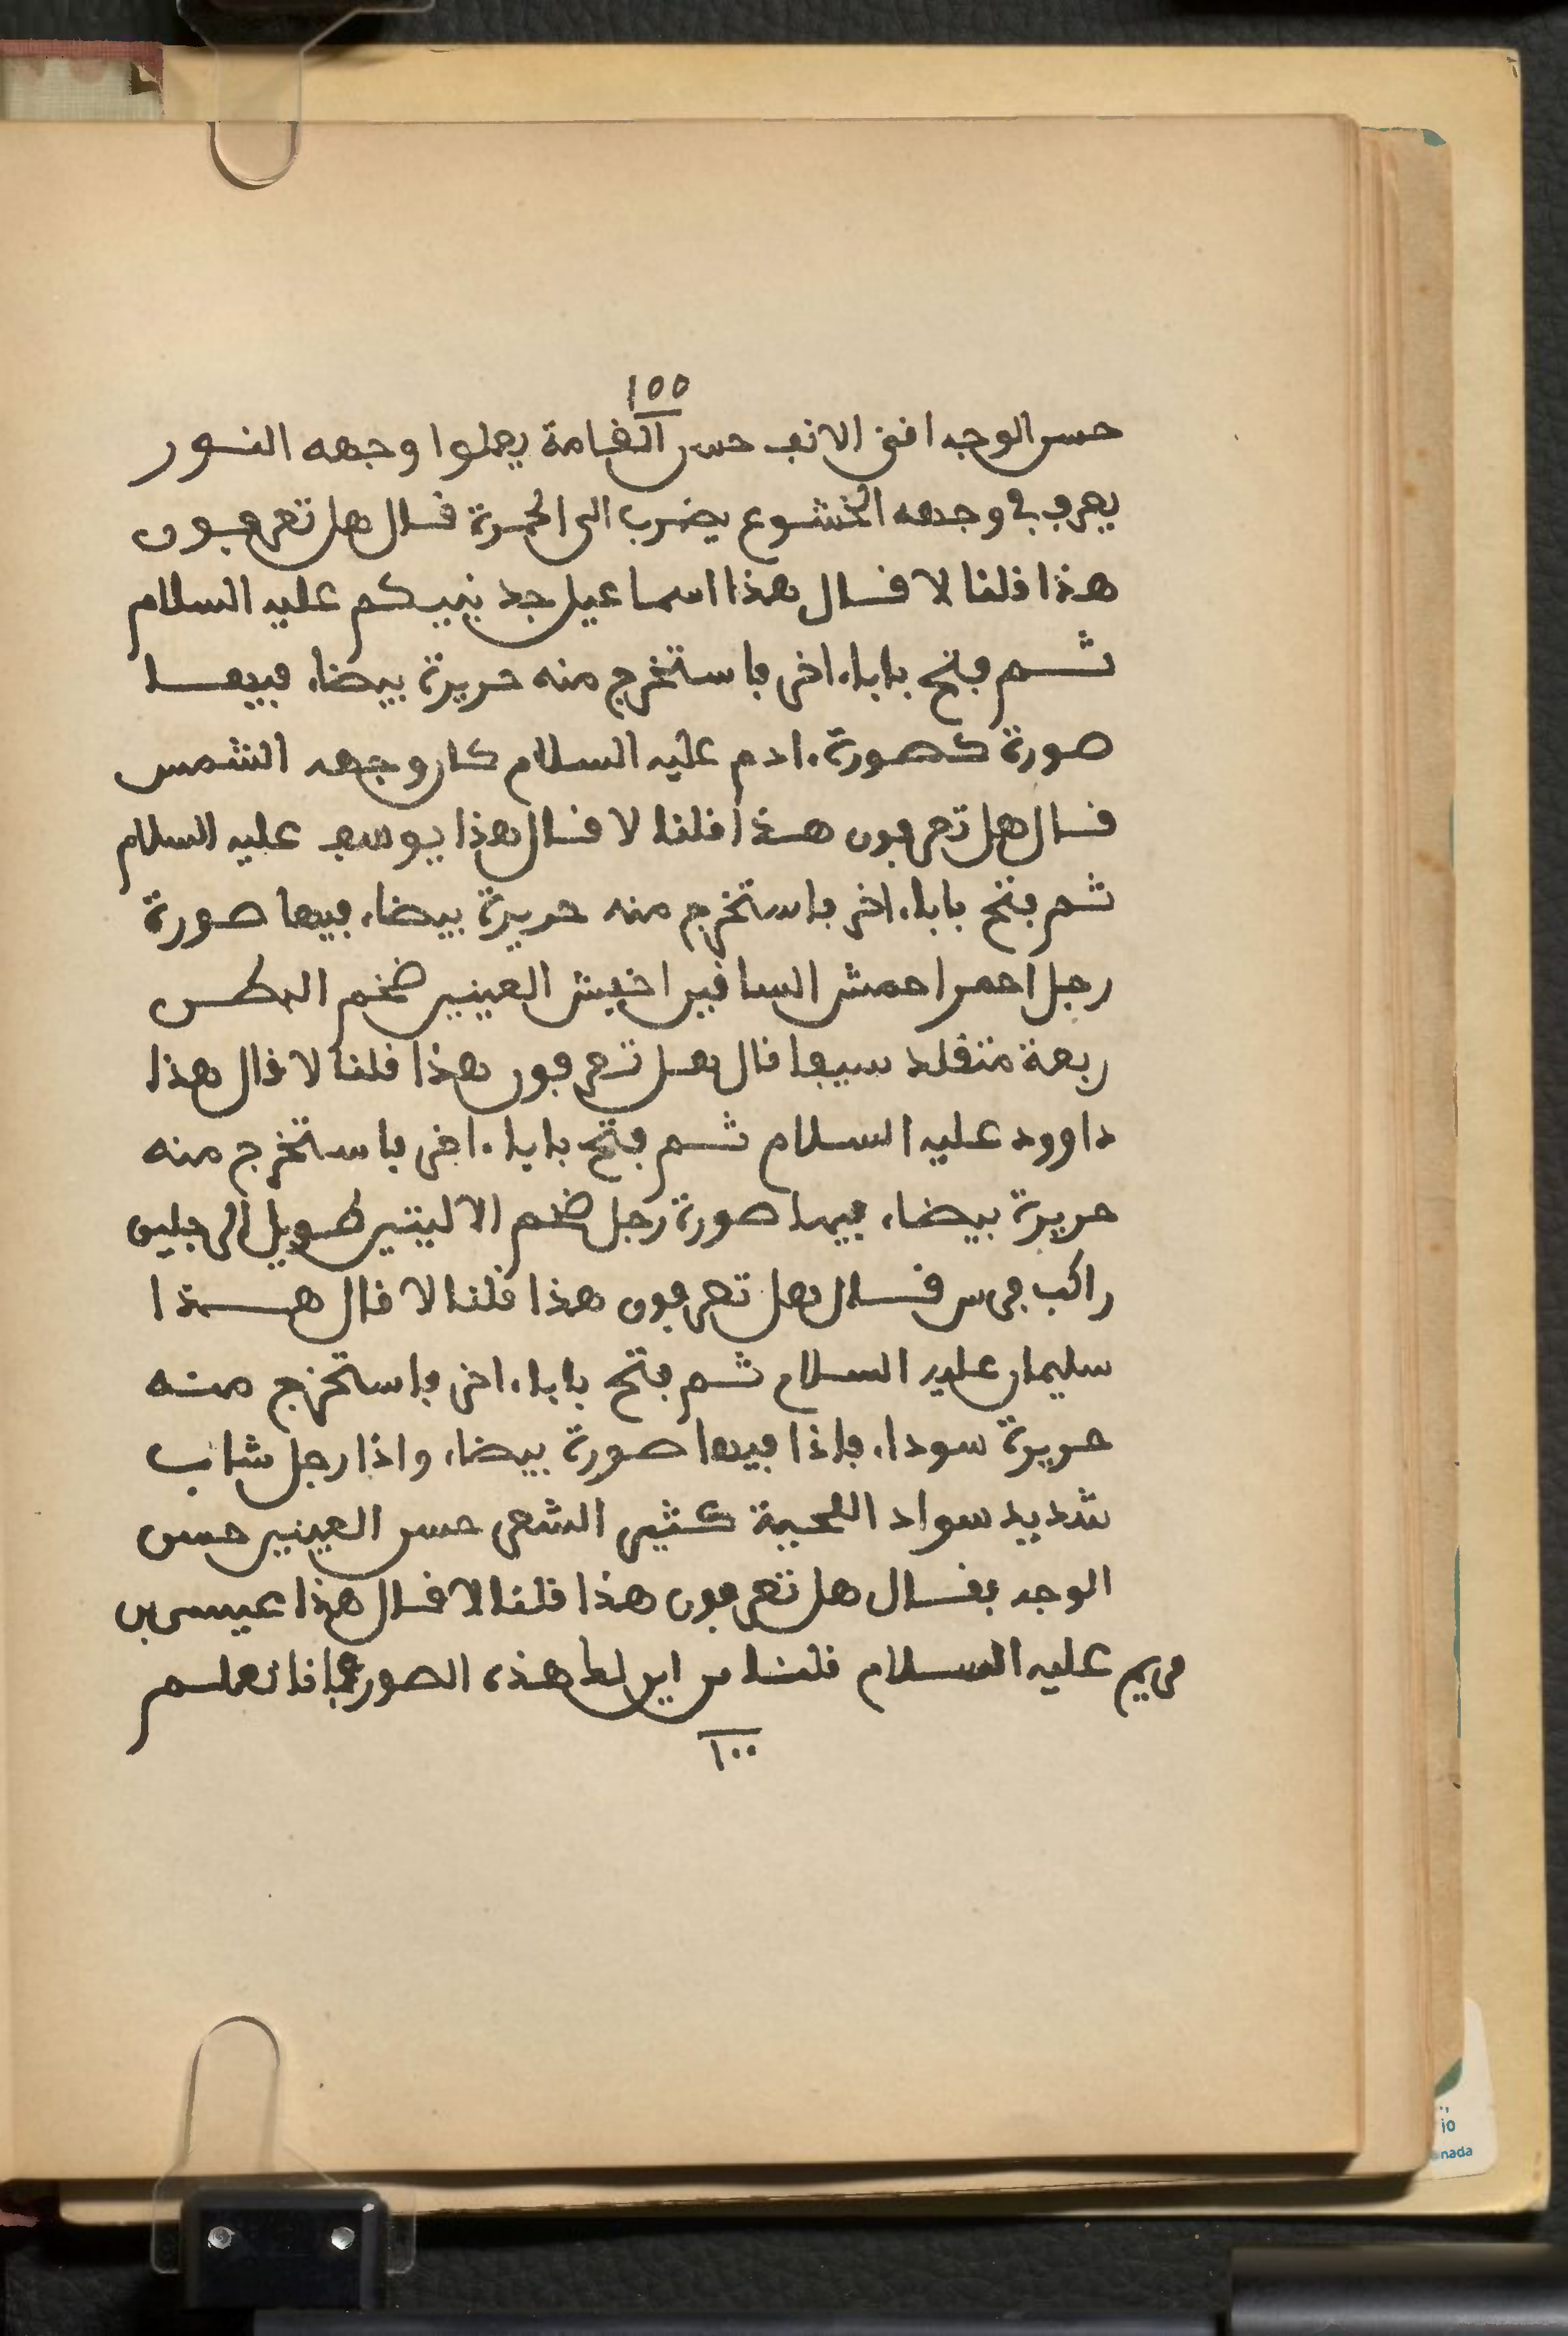 ١٥٥
حسن الوجه افنى الانف حسن القامة يعلوا وجهه النور
يعرف في وجهه الخشوع يضرب الى الحمرة قال هل تعرفون
هذا قلنا لا قال هذا اسماعيل جد نبيكم عليه السلام
ثم فتح بابا ءاخر فاستخرج منه حريرة بيضاء فيها
صورة كصورة ءادم عليه السلام كان وجهه الشمس
قال هل تعرفون هذا قلنا لا قال هذا يوسف عليه السلام
ثم فتح بابا ءاخر فاستخرج منه حريرة بيضاء فيها صورة
رجل احمر احمش السافين اخفش العينين ضخم البطن
ربعة متقلد سيفا قال هل تعرفون هذا قلنا لا قال هذا
داوود عليه السلام ثم فتح بابا ءاخر فاستخرج منه
حريرة بيضاء فيها صورة رجل ضخم الاليتين طويل الرجلين
راكب فرس قال هل تعرفون هذا قلنا لا قال هذا
سليمان عليه السلام ثم فتح بابا ءاخر فاستخرج منه
حريرة سوداء فاذا فيها صورة بيضاء واذا رجل شاب
شديد سواد اللحية كثير الشعر حسن العينين حسن
الوجه فقال هل تعرفون هذا قلنا لا قال هذا عيسى بن
مريم عليه السلام قلنا من اين لك هذه الصور فانا نعلم
١٠٠
io
nada